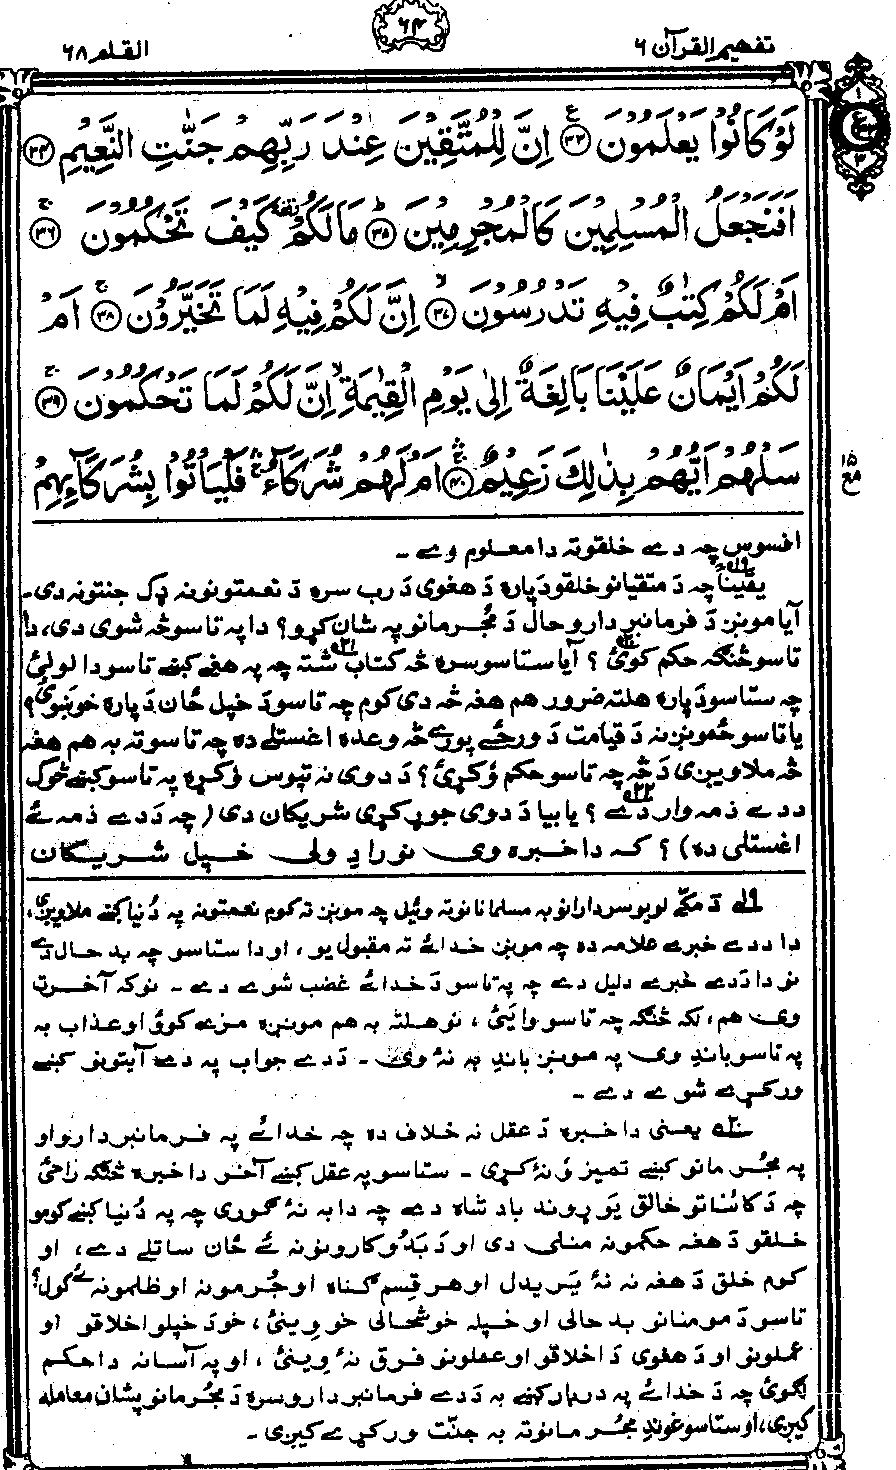 تفهیم القرآن ۶
۶۴
القلم ۶۸
لَوْ كَانُوْا يَعْلَمُوْنَ ۳۳ اِنَّ لِلْمُتَّقِيْنَ عِنْدَ رَبِّهِمْ جَنّٰتِ النَّعِيْمِ ۳۴
اَفَنَجْعَلُ الْمُسْلِمِيْنَ كَالْمُجْرِمِيْنَ ۳۵ مَا لَكُمْ كَيْفَ تَحْكُمُوْنَ ۳۶
اَمْ لَكُمْ كِتٰبٌ فِيْهِ تَدْرُسُوْنَ ۳۷ اِنَّ لَكُمْ فِيْهِ لَمَا تَخَيَّرُوْنَ ۳۸ اَمْ
لَكُمْ اَيْمَانٌ عَلَيْنَا بَالِغَةٌ اِلٰى يَوْمِ الْقِيٰمَةِ اِنَّ لَكُمْ لَمَا تَحْكُمُوْنَ ۳۹
سَلْهُمْ اَيُّهُمْ بِذٰلِكَ زَعِيْمٌ ۴۰ اَمْ لَهُمْ شُرَكَآءُ فَلْيَاْتُوْا بِشُرَكَآئِهِمْ
افسوس چه دے خلقوته دا معلوم وے ـ
یقیناً چه دَ متقیانو خلقو دَپاره دَ هغوی دَ رب سره دَ نعمتونونه ډک جنتونه دی ـ
آیا موبن دَ فرمانبردارو حال دَ مُجرمانو په شان کړو؟ دا په تاسو څه شوی دی، دا
تاسو څنګه حکم کوئ ؟ آیا ستاسو سره څه کتاب شته چه په هغے کښے تاسو دا لولئ
چه ستاسو دَپاره هلته ضرور هم هغه څه دی کوم چه تاسو دَ خپل ځان دَپاره خوښوئ؟
یا تاسو ځمونږ نه دَ قیامت دَ ورځے پورے څه وعده اغستلے ده چه تاسوته به هم هغه
څه ملاویږی دَ څه چه تاسو حکم وُکړئ؟ دَ دوی نه تپوس وُکړه په تاسو کښے څوک
ددے ذمه وار دے ؟ یا بیا دَ دوی جوړ کړی شریکان دی (چه دَدے ذمه ئے
اغستلی ده) ؟ که دا خبره وی نو راد ولی خپل شریکان
۱۹ دَ مکّے لویو سردارانو به مسلمانانو ته وئیل چه موبن ته کوم نعمتونه په دُنیا کښے ملاویږی،
دا ددے خبرے علامه ده چه موبن خدائے ته مقبول یو، او دا ستاسو چه بد حال دے
نو دا دَدے خبرے دلیل دے چه په تاسو دَ خدائے غضب شوے دے ـ نوکه آخرت
وی هم، لکه څنګه چه تاسو وایئ، نو هلته به هم موبنږه مزے کوؤ او عذاب به
په تاسو باندِ وی په موبنږ باندِ به نهٔ وی ـ دَدے جواب په دے آیتونو کښے
ورکړے شوے دے ـ
۲۰ یعنی دا خبره دَ عقل نه خلاف ده چه خدائے په فرمانبردارو او
په مُجرمانو کښے تمیز وُنهٔ کړی ـ ستاسو په عقل کښے آخر دا خبره څنګه راځی
چه دَ کائناتو خالق یَو ړوند بادشاه دے چه دا به نهٔ ګوری چه په دُنیا کښے کومو
خلقو دَ هغه حکمونه منلی دی او دَ بَدو کارونو نه ئے ځان ساتلے دے، او
کوم خلق دَ هغه نه نهٔ یَریدل او هر قِسم ګناه او جُرمونه او ظلمونه ئے کول؟
تاسو دَ مومنانو بد حالی او خپله خوشحالی خو وینئ، خو دَ خپلو اخلاقو او
عملونو او دَ هغوی دَ اخلاقو او عملونو فرق نهٔ وینئ، او په آسانه دا حکم
لګوئ چه دَ خدائے په دربار کښے به دَدے فرمانبردارو سره دَ مُجرمانو په شان معامله
کیږی، او ستاسو غوندِ مجُرمانوته به جنّت ورکړے کیږی ـ